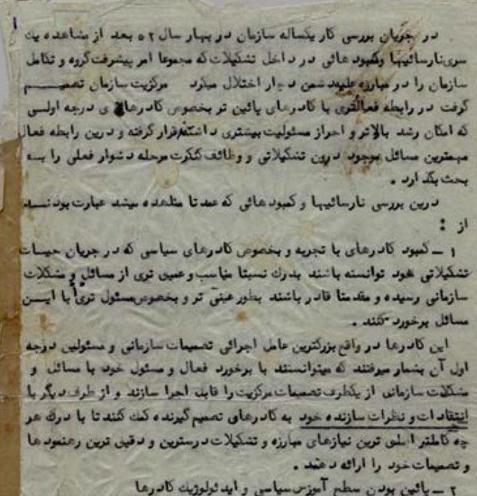 در جریان بررسی کار یکساله سازمان در بهار سال ۵۲ بعد از مشاهده یک
سری نارسائیها و کمبود هائی در داخل تشکیلات که مجموعا امر پیشرفت گروه و تکامل
سازمان را در مبارزه علیه دشمن دچار اختلال میکرد مرکزیت سازمان تصمیم
گرفت در رابطه فعالتری با کادرهای پائین تر بخصوص کادرهای درجه اولی
که امکان رشد بالاتر و احراز مسئولیت بیشتری داشتند قرار گرفته و درین رابطه فعال
مهمترین مسائل موجود درون تشکیلاتی و وظائف کنکرت مرحله دشوار فعلی را به
بحث بگذارد .
درین بررسی نارسائیها و کمبود هائی که عمدتا مشاهده میشد عبارت بودند
از :
۱ – کمبود کادرهای با تجربه و بخصوص کادرهای سیاسی که در جریان حیات
تشکیلاتی خود توانسته باشند بدرک نسبتا مناسب و عمیق تری از مسائل و مشکلات
سازمانی رسیده و مقدمتا قادر باشند بطور عینی تر و بخصوص مسئول تری با این
مسائل برخورد کنند .
این کادرها در واقع بزرگترین عامل اجرائی تصمیمات سازمانی و مسئولین درجه
اول آن بشمار میرفتند که میتوانستند با برخورد فعال و مسئول خود با مسائل و
مشکلات سازمانی از یکطرف تصمیمات مرکزیت را قابل اجرا سازند و از طرف دیگر با
انتقادات و نظرات سازنده خود به کادرهای تصمیم گیرنده کمک کنند تا با درک هر
چه کاملتر اصلی ترین نیازهای مبارزه و تشکیلات درسترین و دقیق ترین رهنمود ها
و تصمیمات خود را ارائه دهند .
۲ – پائین بودن سطح آموزش سیاسی و ایدئولوژیک کادرها